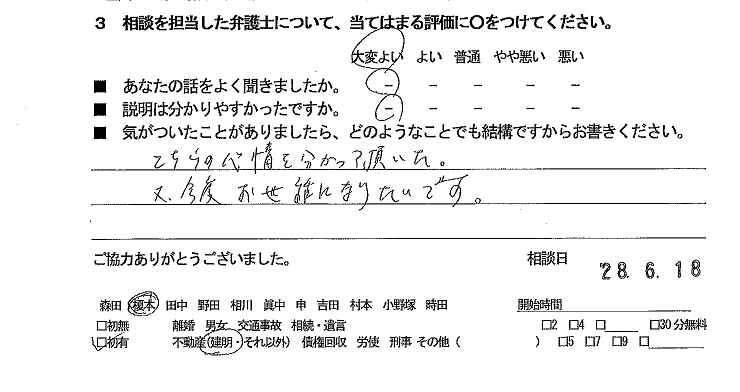 3 相談を担当した弁護士について、当てはまる評価に〇をつけてください。
大変よい よい 普通 やや悪い 悪い
■ あなたの話をよく聞きましたか。 － － － － －
■ 説明は分かりやすかったですか。 － － － － －
■ 気がついたことがありましたら、どのようなことでも結構ですからお書きください。
こちらの心情を分かって頂いた。
又、今度お世話になりたいです。
ご協力ありがとうございました。 相談日 '28.6.18
森田 榎本 田中 野田 相川 眞中 申 吉田 村本 小野塚 時田 開始時間
□初無 離婚 男女 交通事故 相続・遺言 □2 □4 □ □30分無料
□初有 不動産(建明・それ以外) 債権回収 労使 刑事 その他 ( ) □5 □7 □9 □